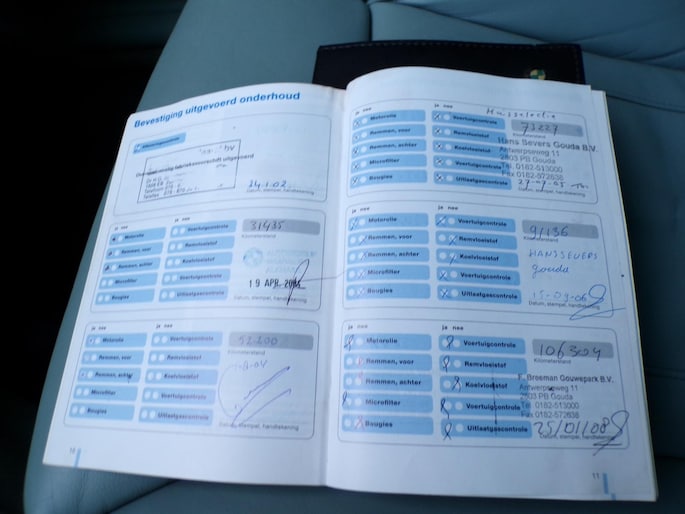 Bevestiging uitgevoerd onderhoud
Uitlevering
fabrieksvoorschrift uitgevoerd
Datum, stempel, handtekening
ja nee
ja nee
Motorolie
Voertuigcontrole
31435
Remmen, voor
Remvloeistof
Kilometerstand
Remmen, achter
Koelvloeistof
Microfilter
Voertuigcontrole
19 APR.
Bougies
Uitlaatgascontrole
Datum, stempel, handtekening
ja nee
ja nee
Motorolie
Voertuigcontrole
52200
Remmen, voor
Remvloeistof
Kilometerstand
Remmen, achter
Koelvloeistof
Microfilter
Voertuigcontrole
Bougies
Uitlaatgascontrole
Datum, stempel, handtekening
10
ja nee
ja nee
Motorolie
Voertuigcontrole
73227
Remmen, voor
Remvloeistof
Hans Severs Gouda B.V.
Remmen, achter
Koelvloeistof
Antwerpseweg 11
2803 PB Gouda
Microfilter
Voertuigcontrole
Tel. 0182-513000
Fax 0182-572636
Bougies
Uitlaatgascontrole
Datum, stempel, handtekening
ja nee
ja nee
Motorolie
Voertuigcontrole
91136
Remmen, voor
Remvloeistof
Kilometerstand
Remmen, achter
Koelvloeistof
HANS SEVERS
Microfilter
Voertuigcontrole
gouda
Bougies
Uitlaatgascontrole
15-09-06
Datum, stempel, handtekening
ja nee
ja nee
Motorolie
Voertuigcontrole
106304
Remmen, voor
Remvloeistof
Kilometerstand
Remmen, achter
Koelvloeistof
Broeman Gouwepark B.V.
Antwerpseweg 11
2803 PB Gouda
Microfilter
Voertuigcontrole
Tel. 0182-513000
Fax 0182-572636
Bougies
Uitlaatgascontrole
25/01/08
Datum, stempel, handtekening
11